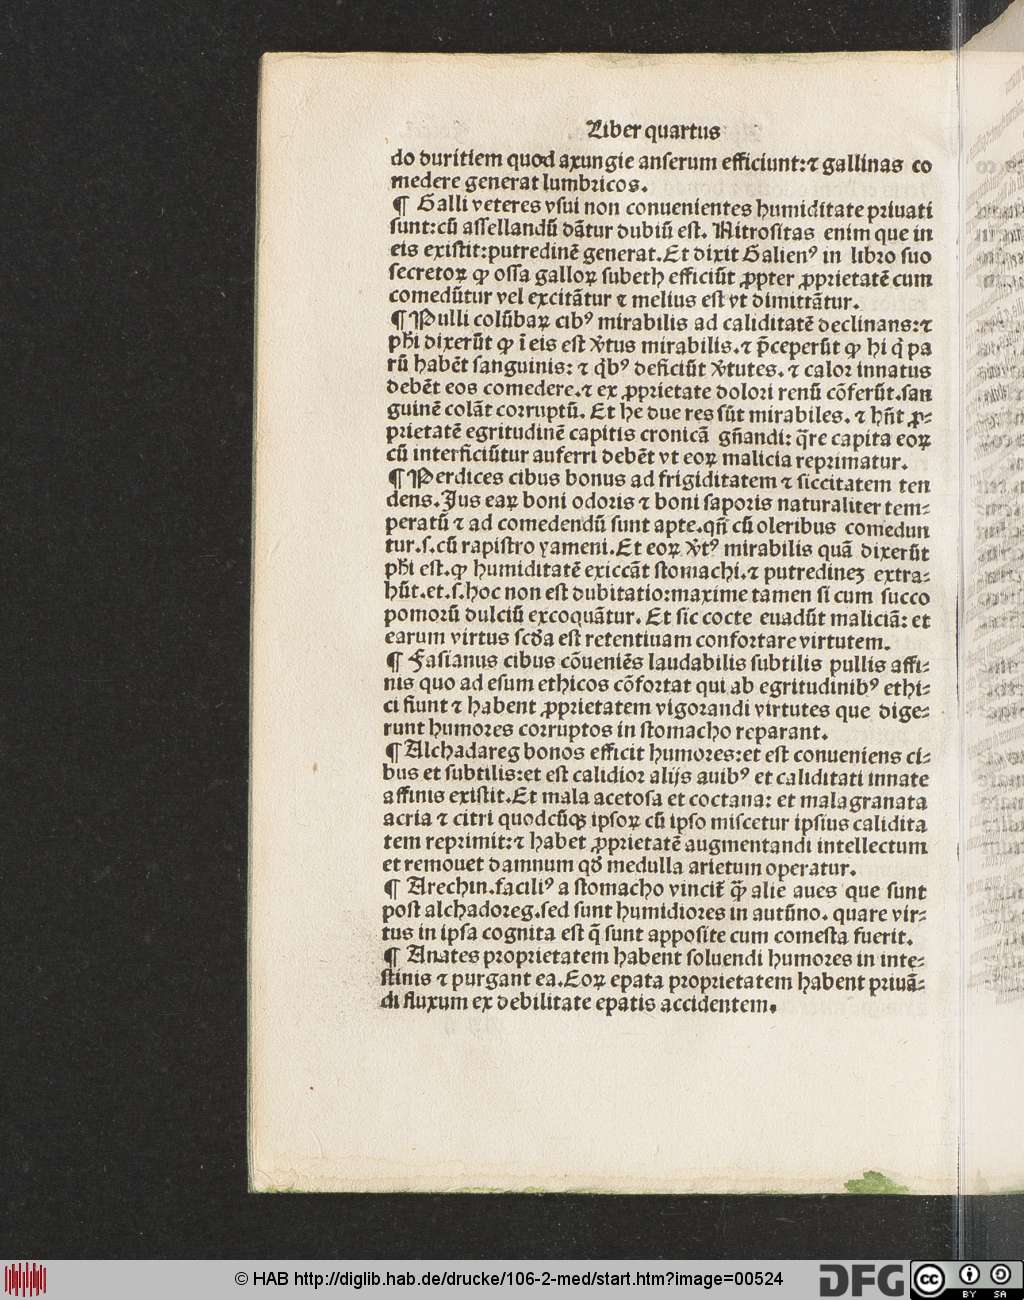 Liber quartus
do duritiem quod axungie anserum efficiunt:⁊ gallinas co
medere generat lumbricos.
¶ Galli veteres vsui non conuenientes humiditate priuati
sunt:cū assellandū dātur dubiū est. Nitrositas enim que in
eis existit:putredinē generat.Et dixit Galienꝰ in libro suo
secretoꝝ ꝙ ossa galloꝝ subeth efficiūt ꝓpter ꝓprietatē cum
comedūtur vel excitātur ⁊ melius est vt dimittātur.
¶ Pulli colūbaꝝ cibꝰ mirabilis ad caliditatē declinans:⁊
phī dixerūt ꝙ ī eis est v̄tus mirabilis.⁊ p̄ceperūt ꝙ hi q̄ pa
rū habēt sanguinis: ⁊ qͥbꝰ deficiūt v̄tutes. ⁊ calor innatus
debēt eos comedere.⁊ ex ꝓprietate dolori renū cōferūt.san
guinē colāt corruptū. Et he due res sūt mirabiles. ⁊ hn̄t ꝓ⸗
prietatē egritudinē capitis cronicā gn̄andi: q̄re capita eoꝝ
cū interficiūtur auferri debēt vt eoꝝ malicia reprimatur.
¶ Perdices cibus bonus ad frigiditatem ⁊ siccitatem ten
dens.Ius eaꝝ boni odoris ⁊ boni saporis naturaliter tem⸗
peratū ⁊ ad comedendū sunt apte.qn̄ cū oleribus comedun
tur.s.cū rapistro yameni.Et eoꝝ v̄tꝰ mirabilis quā dixerūt
phī est.ꝙ humiditatē exiccāt stomachi.⁊ putredinez extra⸗
hūt.et.s.hoc non est dubitatio:maxime tamen si cum succo
pomorū dulciū excoquātur. Et sic cocte euadūt maliciā: et
earum virtus scd̄a est retentiuam confortare virtutem.
¶ Fasianus cibus cōueniēs laudabilis subtilis pullis affi⸗
nis quo ad esum ethicos cōfortat qui ab egritudinibꝰ ethi⸗
ci fiunt ⁊ habent ꝓprietatem vigorandi virtutes que dige⸗
runt humores corruptos in stomacho reparant.
¶ Alchadareg bonos efficit humores:et est conueniens ci⸗
bus et subtilis:et est calidior alijs auibꝰ et caliditati innate
affinis existit.Et mala acetosa et coctana: et malagranata
acria ⁊ citri quodcūqꝫ ipsoꝝ cū ipso miscetur ipsius calidita
tem reprimit:⁊ habet ꝓprietatē augmentandi intellectum
et remouet damnum qd̄ medulla arietum operatur.
¶ Arechin.faciliꝰ a stomacho vincit̄ qͣꝫ alie aues que sunt
post alchadoreg.sed sunt humidiores in autūno. quare vir⸗
tus in ipsa cognita est q̄ sunt apposite cum comesta fuerit.
¶ Anates proprietatem habent soluendi humores in inte⸗
stinis ⁊ purgant ea.Eoꝝ epata proprietatem habent priuā⸗
di fluxum ex debilitate epatis accidentem.
© HAB http://diglib.hab.de/drucke/106-2-med/start.htm?image=00524
DFG
cc BY SA